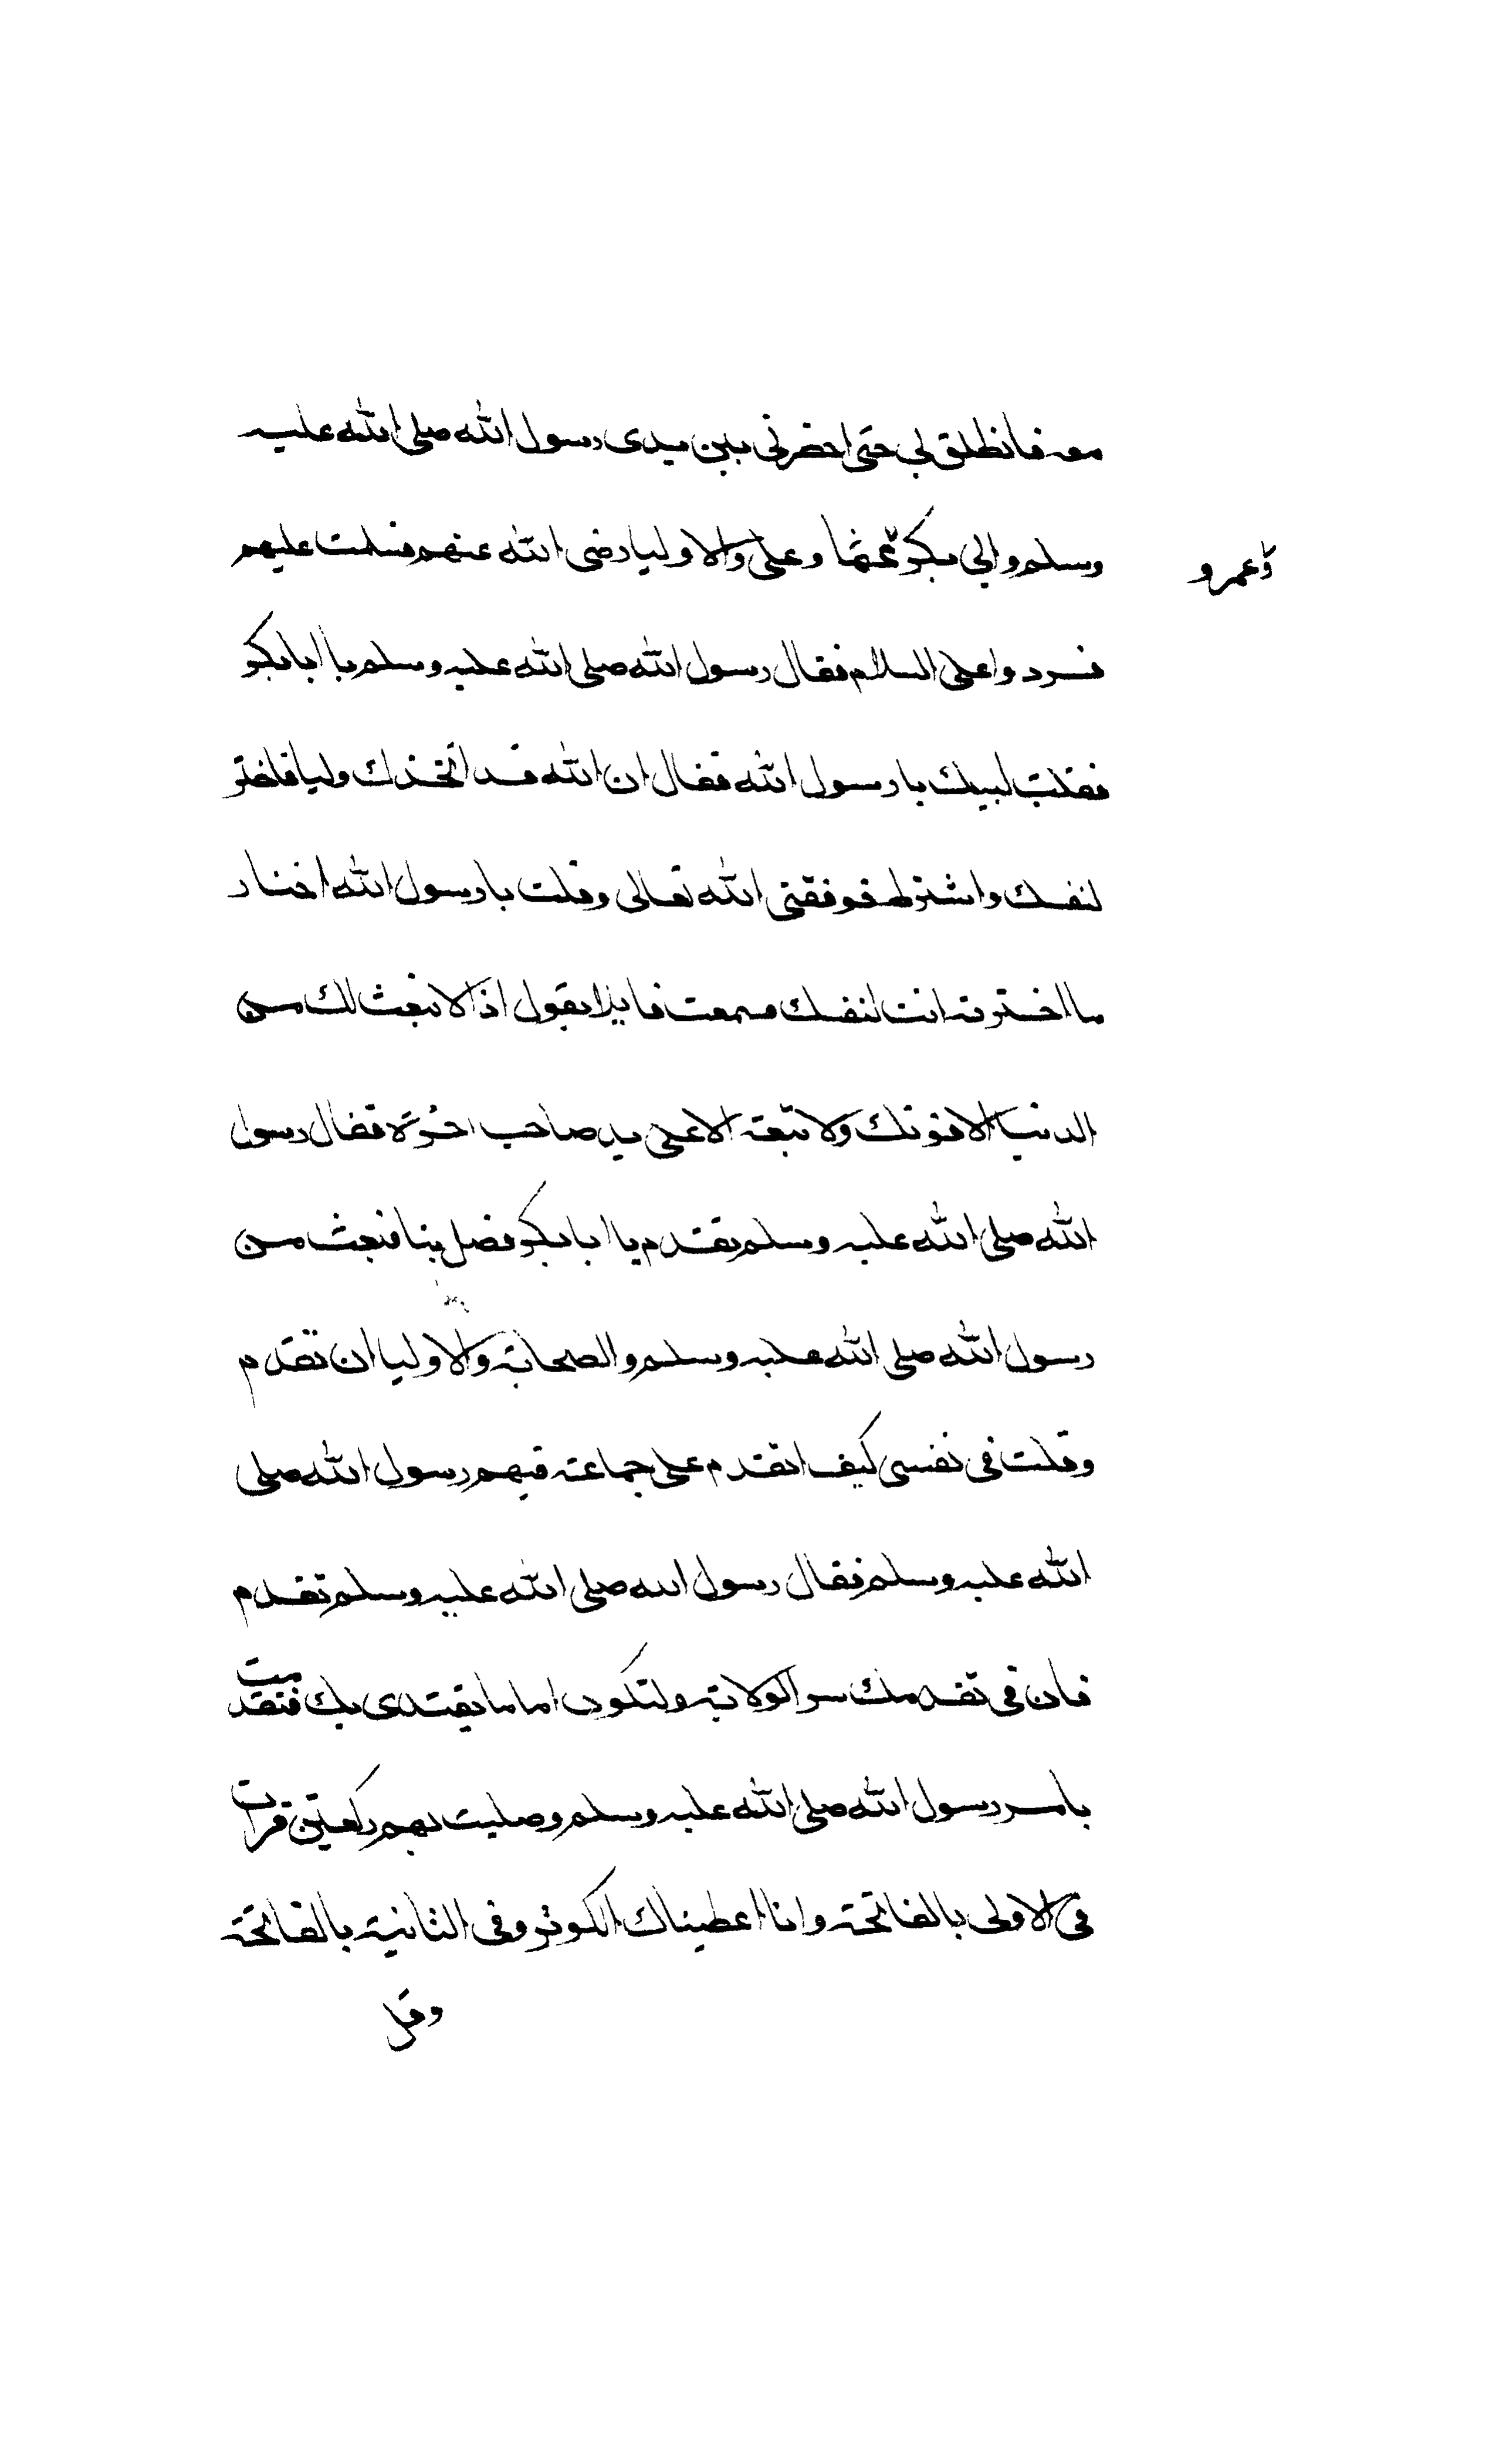 معه فانطلق بي حتى احضرني بين يدى رسول الله صلى الله عليه
وعمر و
وسلم وابي بكر وعثمان وعلى والاوليا رضى الله عنهم فسلمت عليهم
فردوا على السلام فقال رسول الله صلى الله عليه وسلم يا ابا بكر
فقلت لبيك يا رسول الله فقال ان الله قد اتخذك وليا فاختر
لنفسك واشترط فوفقنى الله تعالى وقلت يا رسول الله اختار
ما اخترته انت لنفسك فسمعت قايلا يقول اذا لا نبعث لك من
الدنيا الا قوتك ولا نبعثه الا على يد صاحب اخرة فقال رسول
الله صلى الله عليه وسلم تقدم يا ابا بكر فصل بنا فهبت من
رسول الله صلى الله عليه وسلم والصحابة والاوليا ان تقدم
وقلت فى نفسى كيف اتقدم على جماعة فيهم رسول الله صلى
الله عليه وسلم فقال رسول الله صلى الله عليه وسلم تقدم
فان فى تقدمك سر الولاية ولتكون اماما يقتدى بك فتقدمت
بامر رسول الله صلى الله عليه وسلم وصليت بهم ركعتين قرات
فى الاولى بالفاتحة وانا اعطيناك الكوثر وفى الثانية بالفاتحة
وقل